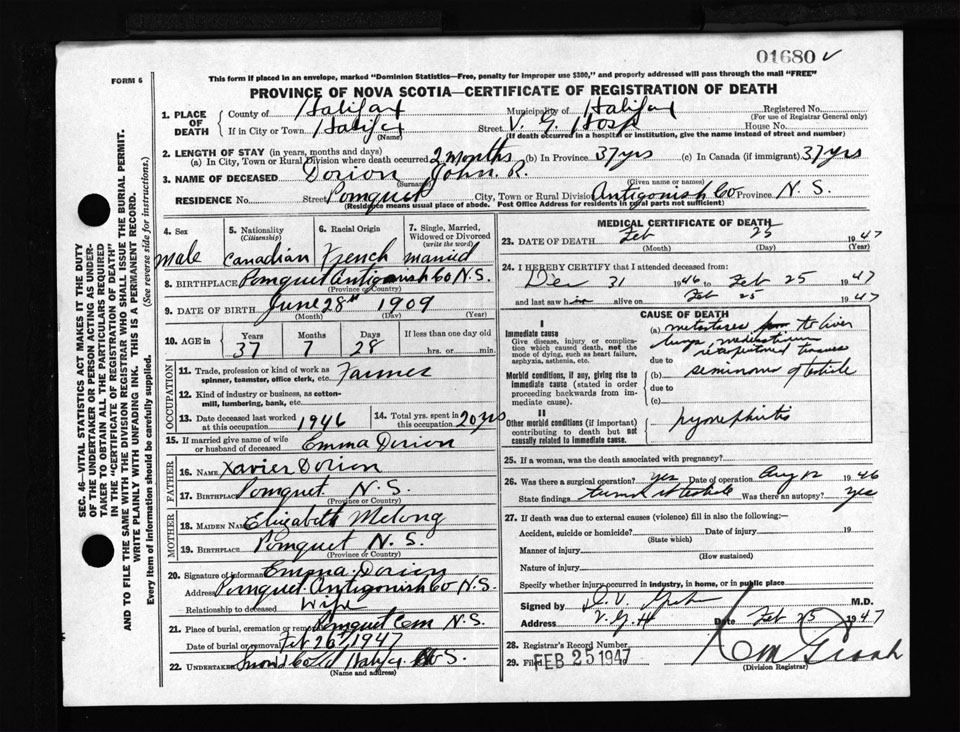 01680 v
FORM 6
This form if placed in an envelope, marked "Dominion Statistics—Free, penalty for improper use $300," and properly addressed will pass through the mail "FREE"
PROVINCE OF NOVA SCOTIA—CERTIFICATE OF REGISTRATION OF DEATH
1. PLACE OF DEATH County of Halifax Municipality of Halifax Registered No.
(For use of Registrar General only)
If in City or Town Halifax Street V. G. Hosp House No.
(Name) (If death occurred in a hospital or institution, give the name instead of street and number)
2. LENGTH OF STAY (in years, months and days)
(a) In City, Town or Rural Division where death occurred 2 months (b) In Province 37 yrs (c) In Canada (if immigrant) 37 yrs
3. NAME OF DECEASED Dorion John R.
(Surname) (Given name or names)
RESIDENCE No. Street Pomquet City, Town or Rural Division Antigonish Co Province N. S.
(Residence means usual place of abode. Post Office Address for residents in rural parts not sufficient)
4. Sex 5. Nationality (Citizenship) 6. Racial Origin 7. Single, Married, Widowed or Divorced (write the word)
Male Canadian French Married
8. BIRTHPLACE Pomquet Antigonish Co N.S.
(Province or Country)
9. DATE OF BIRTH June 28th 1909
(Month) (Day) (Year)
10. AGE in Years Months Days If less than one day old
37 7 28 hrs. or min.
OCCUPATION
11. Trade, profession or kind of work as spinner, teamster, office clerk, etc. Farmer
12. Kind of industry or business, as cotton-mill, lumbering, bank, etc.
13. Date deceased last worked at this occupation 1946 14. Total yrs. spent in this occupation 20 yrs
15. If married give name of wife or husband of deceased Emma Dorion
FATHER
16. NAME Xavier Dorion
17. BIRTHPLACE Pomquet N.S.
(Province or Country)
MOTHER
18. MAIDEN NAME Elizabeth Melong
19. BIRTHPLACE Pomquet N.S.
(Province or Country)
20. Signature of informant Emma Dorion
Address Pomquet Antigonish Co N.S.
Relationship to deceased Wife
21. Place of burial, cremation or removal Pomquet Cem N.S.
Date of burial or removal Feb 26 1947
22. Undertaker Snow & Co Ld Halifax N.S.
(Name and address)
MEDICAL CERTIFICATE OF DEATH
23. DATE OF DEATH Feb 25 1947
(Month) (Day) (Year)
24. I HEREBY CERTIFY that I attended deceased from:
Dec 31 1946 to Feb 25 1947
and last saw him alive on Feb 25 1947
CAUSE OF DEATH
I
Immediate cause
Give disease, injury or complication which caused death, not the mode of dying, such as heart failure, asphyxia, asthenia, etc.
(a) to liver
lungs, mediastinum
retroperitoneal tissues
due to
Morbid conditions, if any, giving rise to immediate cause (stated in order proceeding backwards from immediate cause).
(b) seminoma of testicle
due to
(c)
II
Other morbid conditions (if important) contributing to death but not causally related to immediate cause.
pyonephritis
25. If a woman, was the death associated with pregnancy?
26. Was there a surgical operation? yes Date of operation Aug 12 1946
State findings tumor of testicle Was there an autopsy? yes
27. If death was due to external causes (violence) fill in also the following:—
Accident, suicide or homicide? Date of injury 19
(State which)
Manner of injury
(How sustained)
Nature of injury
Specify whether injury occurred in industry, in home, or in public place
Signed by M.D.
Address V.G.H Date Feb 25 1947
28. Registrar's Record Number
29. Filed FEB 25 1947
(Division Registrar)
SEC. 46—VITAL STATISTICS ACT MAKES IT THE DUTY
OF THE UNDERTAKER OR PERSON ACTING AS UNDER-
TAKER TO OBTAIN ALL THE PARTICULARS REQUIRED
IN THE "CERTIFICATE OF REGISTRATION OF DEATH"
AND TO FILE THE SAME WITH THE DIVISION REGISTRAR WHO SHALL ISSUE THE BURIAL PERMIT.
WRITE PLAINLY WITH UNFADING INK. THIS IS A PERMANENT RECORD.
Every item of information should be carefully supplied. (See reverse side for instructions.)